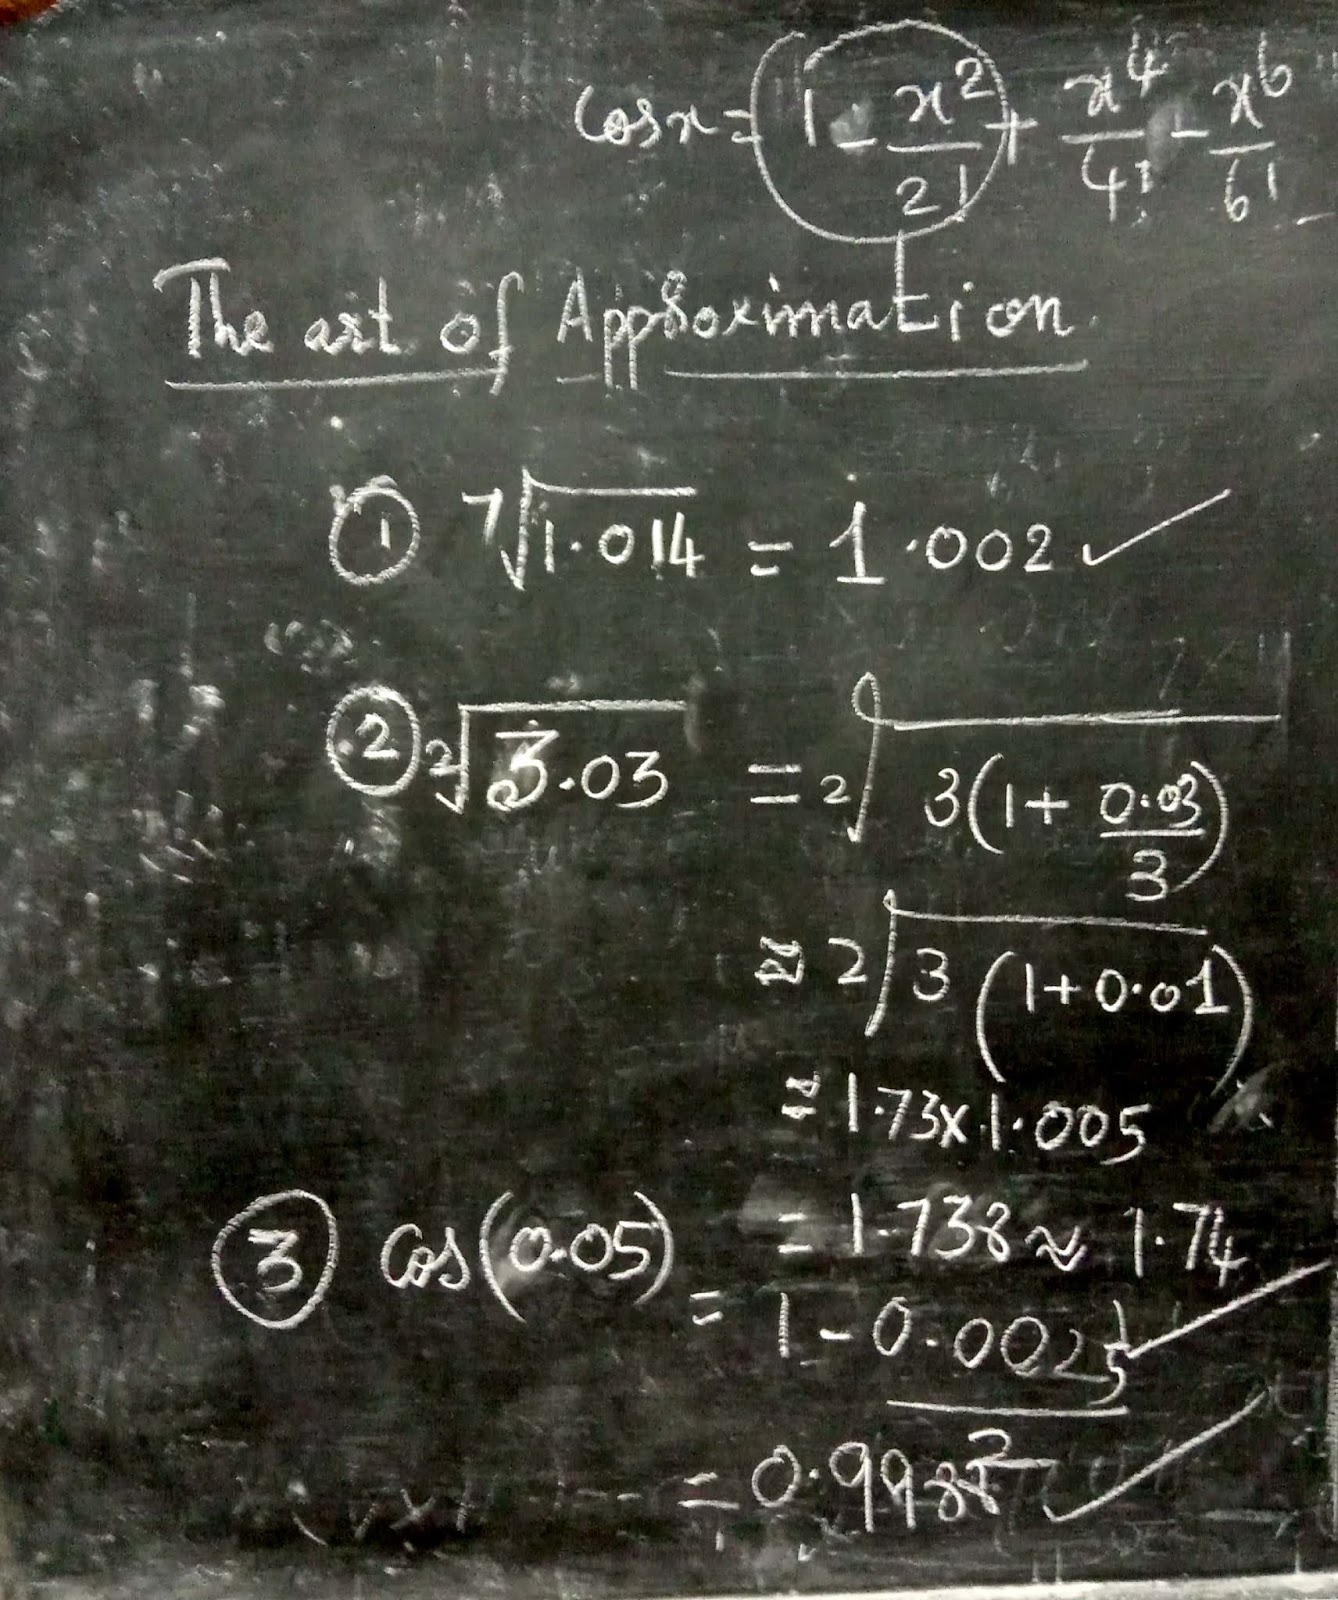 cos x = 1 - x²/2! + x⁴/4! - x⁶/6!
The art of Approximation
① ⁷√1.014 = 1.002 ✓
② ²√3.03 = ²√3(1 + 0.03/3)
≈ 2√3(1+0.01)
≈ 1.73 x 1.005
= 1.738 ≈ 1.74
③ cos(0.05) = 1 - 0.0025/2
= 0.9988